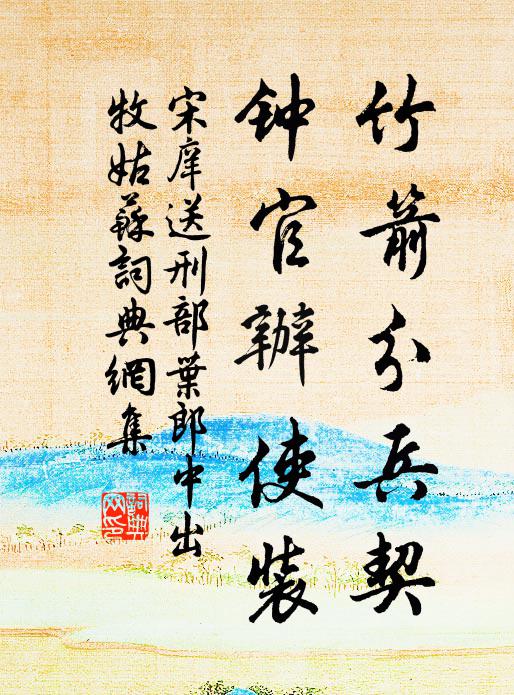 竹箭分兵契
钟官辦使装
宋庠送刑部葉郎中出
牧姑蘇詞典網集